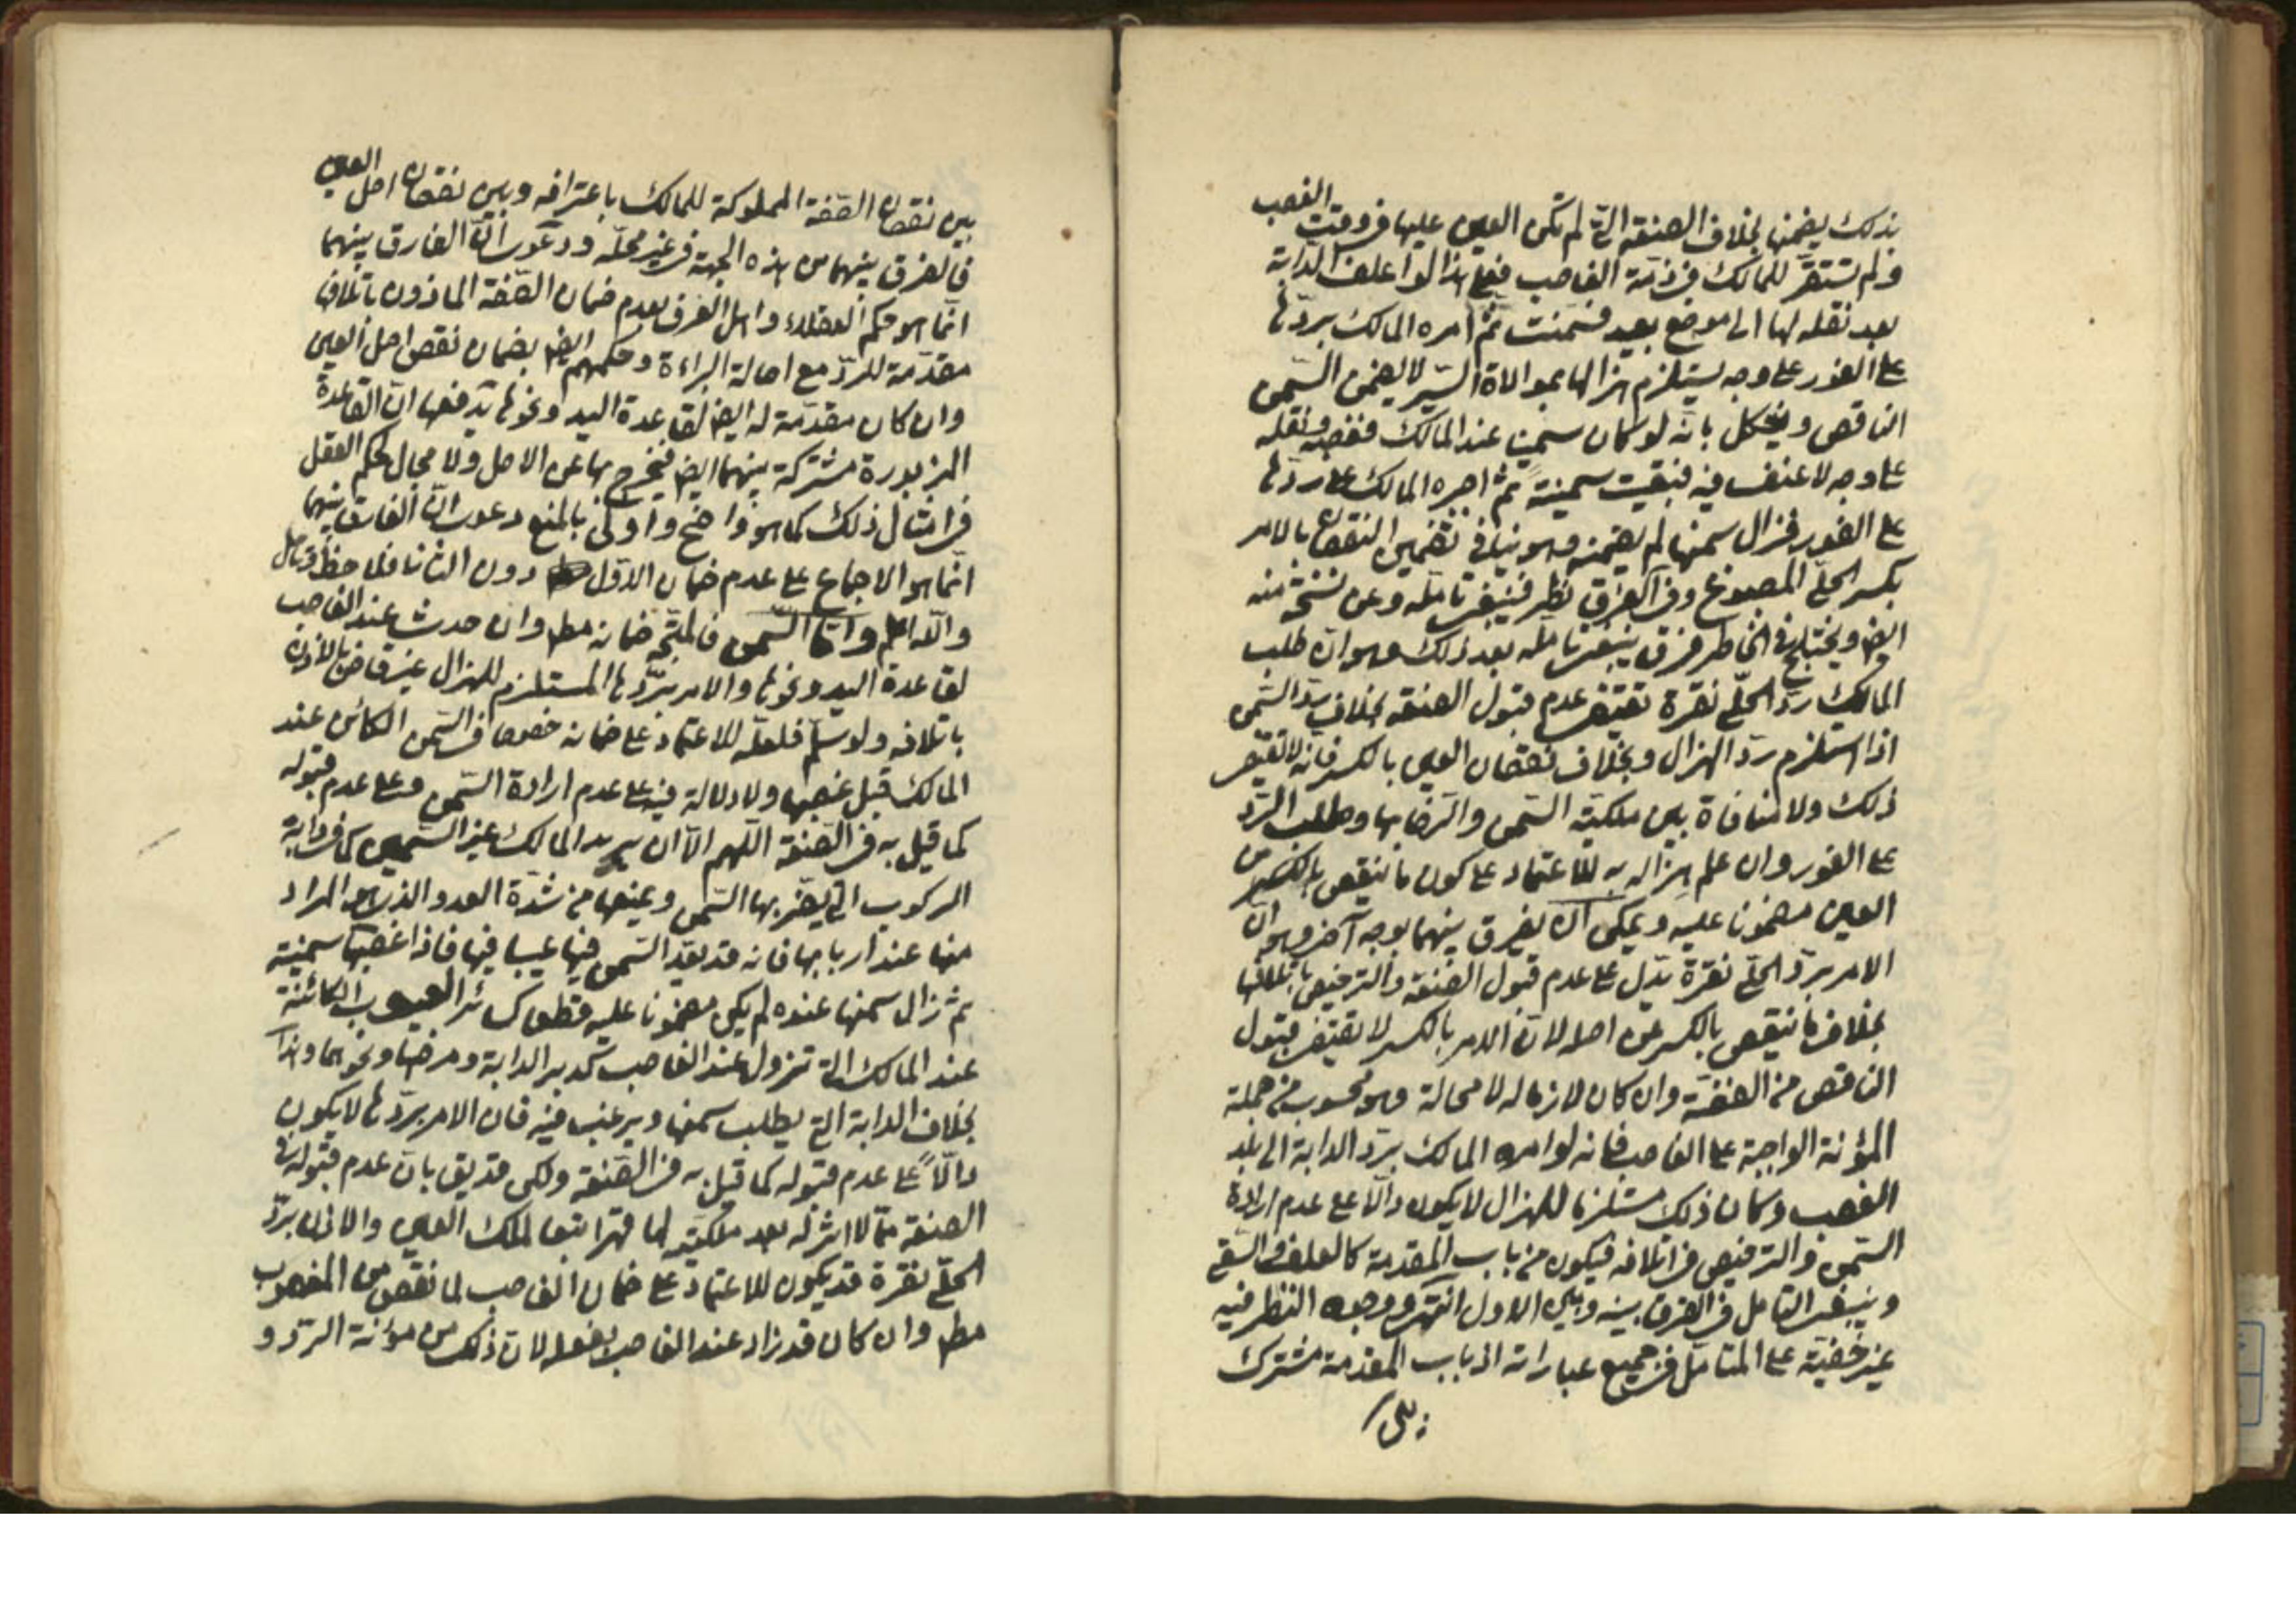 بذلك يضمنها بخلاف الصنعة التى لم تكن العين عليها فى وقت الغصب
ولم تستقر للمالك فى ذمة الغاصب فعلى هذا لو اعلف الدابة
بعد نقله لها الى موضع بعيد فسمنت ثم امره المالك بردّها
على الفور على وجه يستلزم هزالها بموالاة السير لا يضمن السمن
الناقص ويشكل بانه لو كان سمينا عند المالك فغصبه ونقله
على وجه لا عنف فيه فبقيت سمينة ثم اجبره المالك على ردّها
على الفور فزال سمنها لم يضمنه وهو ينافى تضمين النقصان بالامر
بكسر الحلّى المصوغ وفى الفرق نظر فينبغى تامله وعن نسخة منه
ايضا ويختلج فى الخاطر فرق ينبغى تامله بعد ذلك وهو ان طلب
المالك ردّ الحلّى نقرة تقتضى عدم قبول الصنعة بخلاف ردّ السمن
اذا استلزم ردّ الهزال وبخلاف نقصان العين بالكسر فانه لا تقتضى
ذلك ولا منافاة بين ملكية السمن والرضا بها وطلب الردّ
على الفور وان علم هزاله به للاعتماد على كون ما ينقص بالكسر من
العين مضمونا عليه ويمكن ان يفرق بينهما بوجه آخر وهو ان
الامر بردّ الحلّى نقرة يدّل على عدم قبول الصنعة والترخيص باتلافها
بخلاف ما ينقص بالكسر عن اصله لان الامر بالكسر لا يقتضى قبول
الناقص من الفضّة وان كان لازما له لا محالة وهو محسوب من جملة
المؤنة الواجبة على الغاصب فانه لو امره المالك بردّ الدابة الى بلد
الغصب وكان ذلك مستلزما للهزال لا يكون دالّا على عدم ارادة
السمن والترخيص فى اتلافه فيكون من باب المقدمة كالعلف والسقى
وينبغى التامل فى الفرق بينه وبين الاول انتهى ووجوه النظر فيه
غير خفيّة على المتامل فى جميع عباراته اذ باب المقدمة مشترك
بين
بين نقصان الصّفة المملوكة للمالك باعترافه وبين نقصان اصل العين
فالفرق بينهما من هذه الجهة فى غير محلّه ودعوى انّ الفارق بينهما
انّما هو حكم العقلاء واهل العرف بعدم ضمان الصّفة الماذون باتلافها
مقدّمة للردّ مع اصالة البراءة وحكمهم ايضا بضمان نقص اصل العين
وان كان مقدّمة له ايضا لقاعدة اليد ونحوها يدفعها ان القاعدة
المزبورة مشتركة بينهما ايضا فيخرج بها عن الاصل ولا مجال لحكم العقل
فى امثال ذلك كما هو واضح واولى بالمنع دعوى انّ الفارق بينهما
انما هو الاجماع على عدم ضمان الاوّل دون الثانى فلاحظ وتامل
والله اعلم وامّا السمن فالمتّجه ضمانه مط وان حدث عند الغاصب
لقاعدة اليد ونحوها والامر بردّها المستلزم للهزال غير قاض بالاذن
باتلافه ولو سلّم فلعلّه للاعتماد على ضمانه خصوصا فى السمن الكائن عند
المالك قبل غصبها ولا دلالة فيه على عدم ارادة السّمن وعلى عدم قبوله
كما قيل به فى الصنعة اللهم الّا ان يريد المالك غير السّمين كما فى دابة
الركوب التى يضرّ بها السّمن ويمنعها من شدّة العدو الذى هو المراد
منها عند اربابها فانه قد يعدّ السّمن فيها عيبا فيها فاذا غصبها سمينة
ثم زال سمنها عنده لم يكن مضمونا عليه قطعا كسائر العيوب الكائنة
عند المالك التى تزول عند الغاصب كدبر الدابة ومرضها ونحوهما وهذا
بخلاف الدابة التى يطلب سمنها ويرغب فيه فان الامر بردّها لا يكون
دالّاً على عدم قبوله كما قيل به فى الصّنعة ولكن قد يق بان عدم قبوله
الصنعة ممّا لا اثر له بعد ملكيته لها قهرا تبعا لملك العين والاذن بردّ
الحلّى نقرة قد يكون للاعتماد على ضمان الغاصب لما نقص من المغصوب
مط وان كان قد زاد عند الغاصب بفعله لان ذلك من مؤنة الردّ و